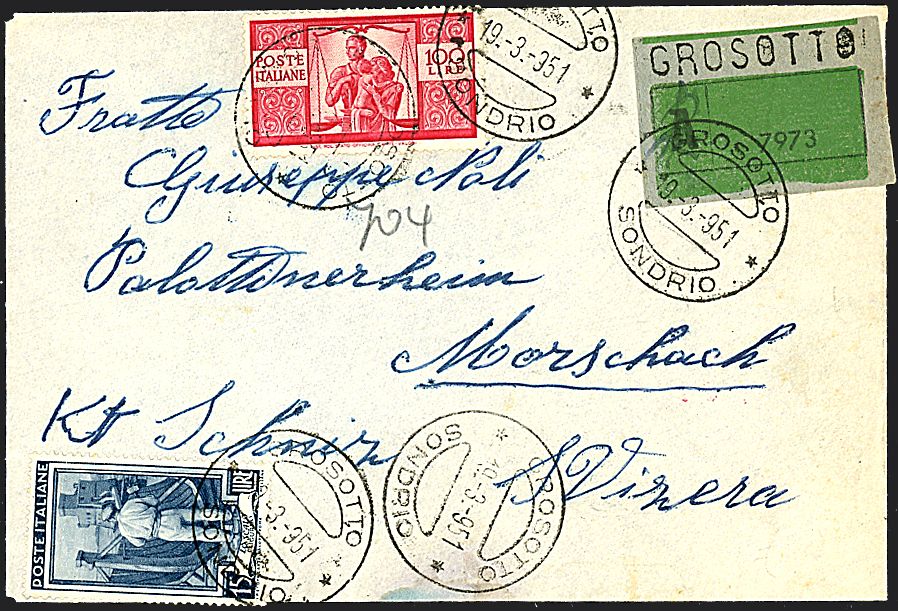 POSTE ITALIANE
100 LIRE
GROSOTTO
19.-3.-951
SONDRIO
GROSOTTO
7973
GROSOTTO
19.-3.-951
SONDRIO
Fratto
Giuseppe Noli
704
Palottinerheim
Morschach
Kt Schwiz
SVizera
POSTE ITALIANE
LIRE
GROSOTTO
-3.-951
SONDRIO
GROSOTTO
-3.-951
SONDRIO